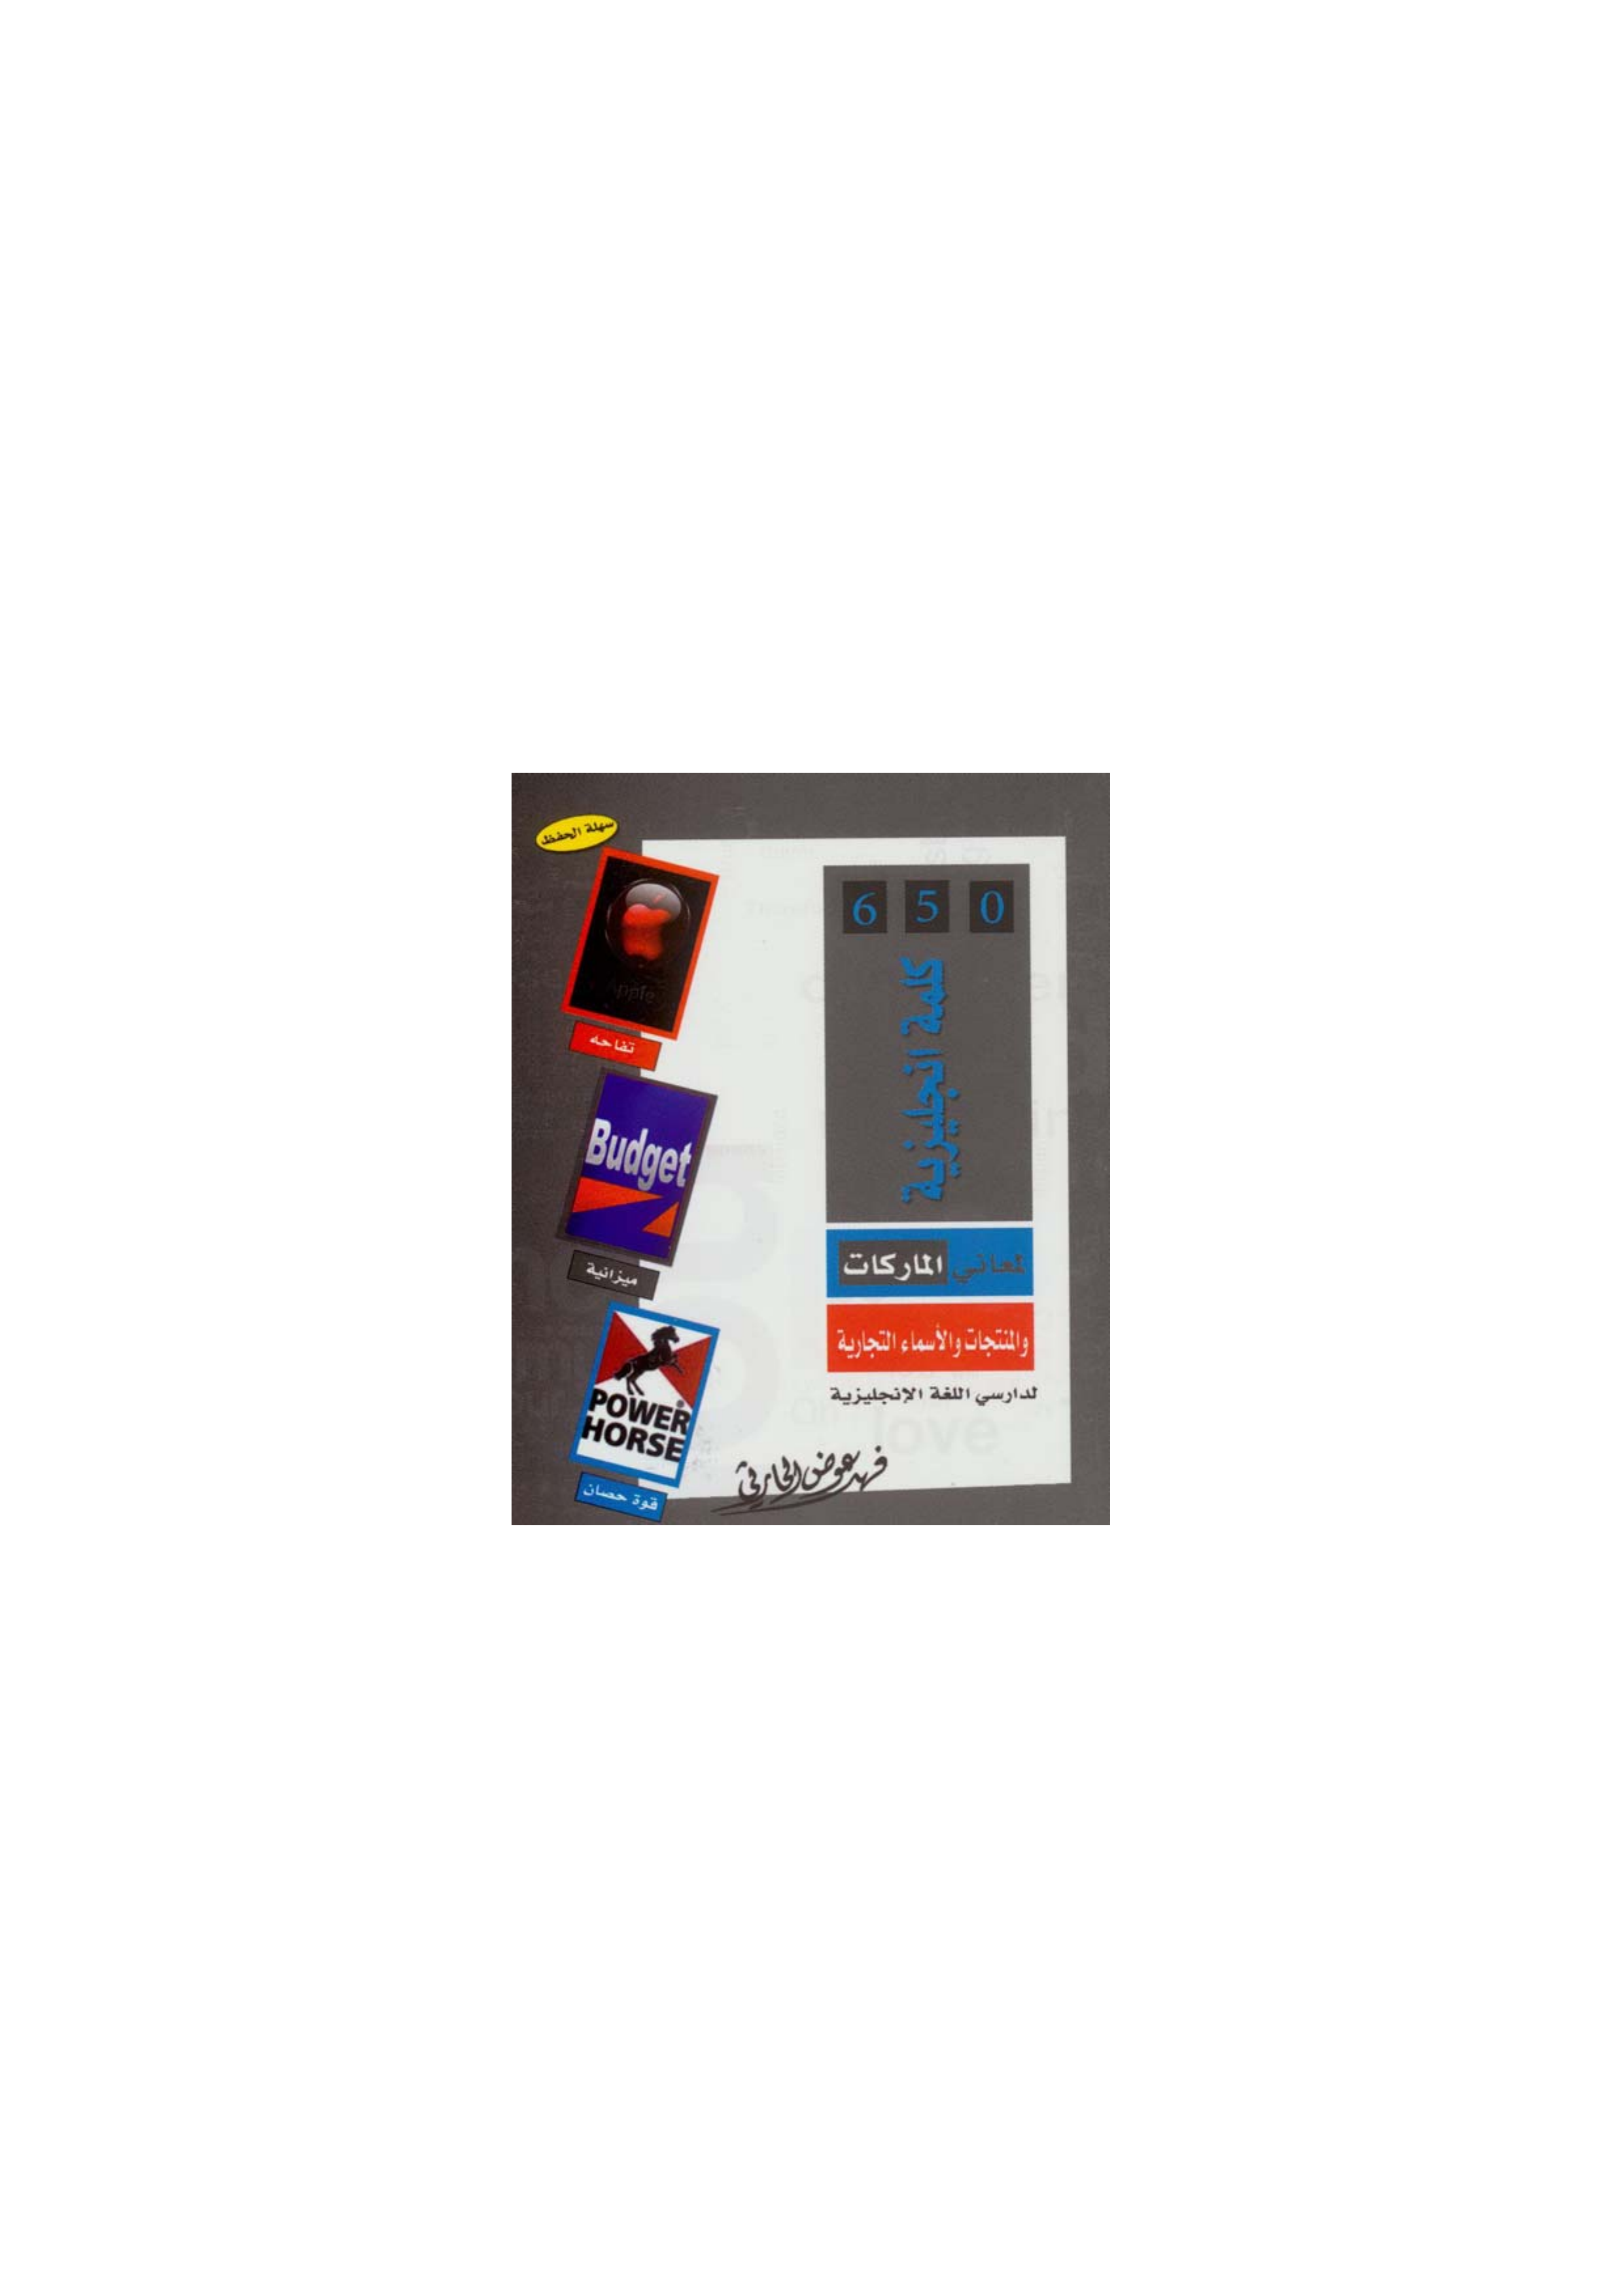 سهلة الحفظ
6 5 0
كلمة انجليزية
لمعاني الماركات
والمنتجات والأسماء التجارية
لدارسي اللغة الإنجليزية
فهد عوض الحارثي
تفاحه
Budget
ميزانية
POWER
HORSE
قوة حصان
love